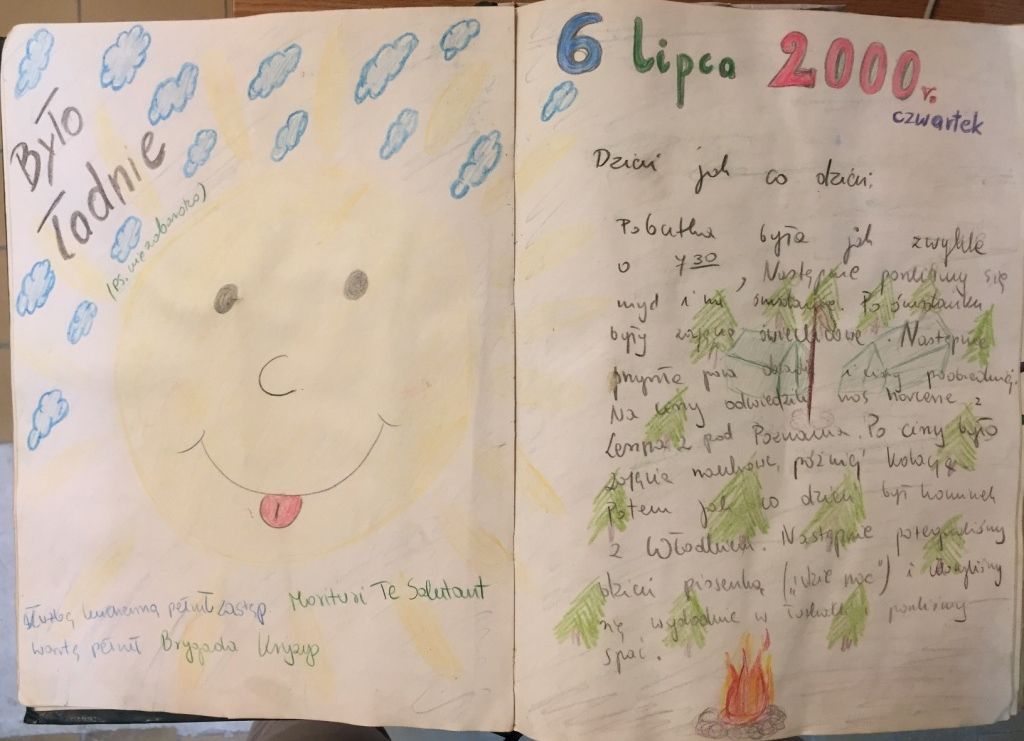 Było
ładnie
(Ps. nie zabardzo)
służbę kuchenną pełnił zastęp Morituri Te Salutant
wartę pełnił Brygada
6 Lipca 2000 r.
czwartek
Dzień jak co dzień:
Pobutka była jak zwykle
o 7 30, Następnie poszliśmy się
myć i na śniadanie. Po śniadaniu
były zajęcia świetlicowe. Następnie
przyszła pora obiadu i ciszy poobiedniej.
Na ciszy odwiedzili nas harcerze z
pod Poznania. Po ciszy było
zajęcia naukowe, później kolacja
Potem jak co dzień był kominek
z Włodkiem. Następnie pożegnaliśmy
dzień piosenką ("idzie noc") i
się wygodnie w łóżkach i poszliśmy
spać.